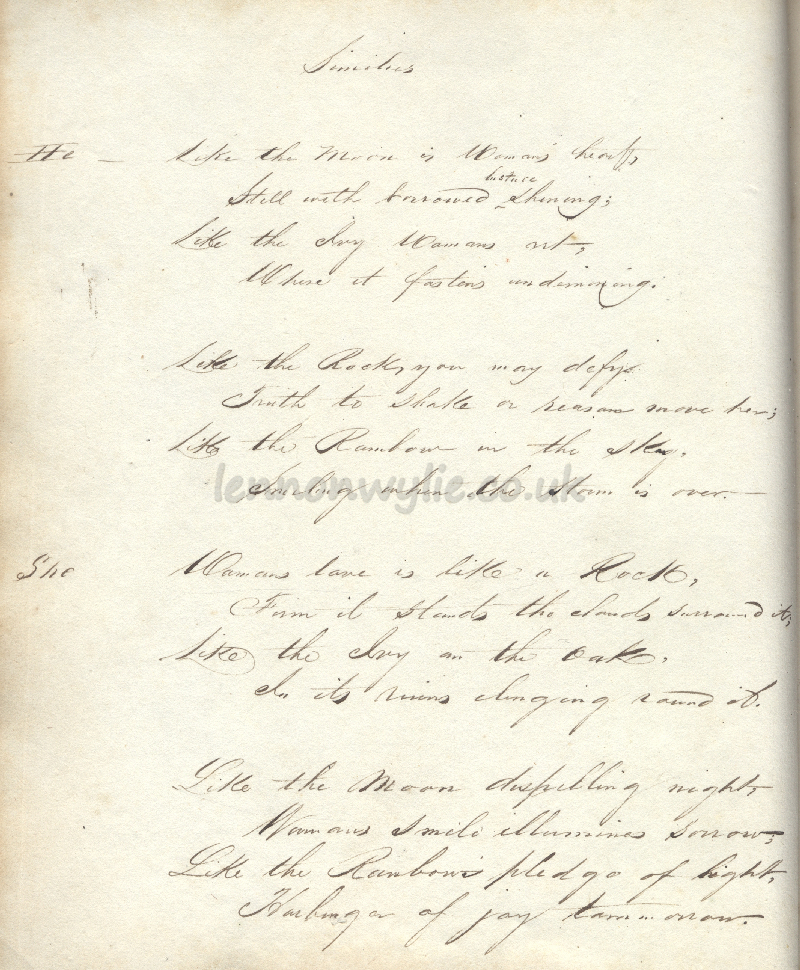 Similies
He — Like the Moon is Woman's heart,
lusture
Still with borrowed shining;
Like the Ivy Womans art,
Where it fastens undermining.
Like the Rock, you may defy
Truth to shake or reason move her;
Like the Rainbow in the sky,
Smiling when the storm is over.—
lennonwylie.co.uk
She Womans love is like a Rock,
Firm it stands tho clouds surround it;
Like the Ivy on the Oak,
In its ruins clinging round it.
Like the Moon dispelling night,
Womans smile illumines sorrow;
Like the Rainbow's pledge of light,
Harbinger of joy tommorrow.